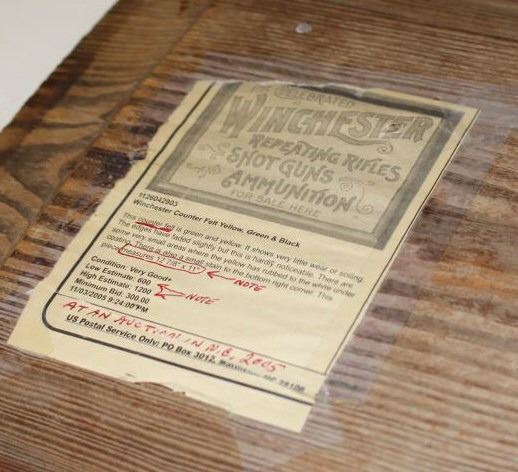 CELEBRATED
WINCHESTER
REPEATING RIFLES
SHOT GUNS
AMMUNITION
FOR SALE HERE
1126042903
Winchester Counter Felt Yellow, Green & Black
This counter felt is green and yellow. It shows very little wear or soiling.
The edges have faded slightly but this is hardly noticeable. There are
some very small areas where the yellow has rubbed to the white under
coating. There is also a small stain to the bottom right corner. This
piece measures 12 7/8" x 11"
NOTE
Condition: Very Good+
Low Estimate: 600
High Estimate: 1200
NOTE
Minimum Bid: 300.00
11/03/2005 9:24:00 PM
AT AN AUCTION IN N.C. 2005
US Postal Service Only: PO Box 3012, NC 28106